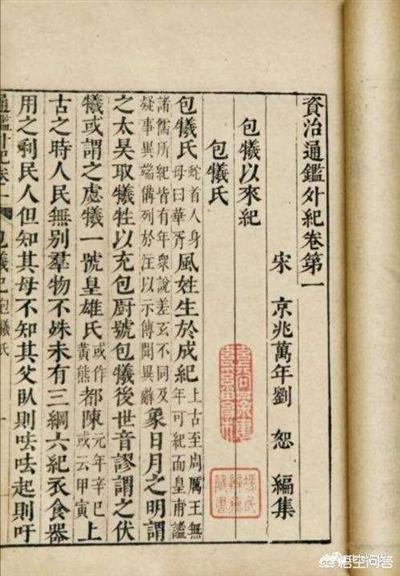 資治通鑑外紀卷第一
宋 京兆萬年劉恕 編集
包犧以來紀
包犧氏
包犧氏蛇首人身風姓生於成紀上古至周厲王無
諸儒所紀皆有年衆說差互不同及年可紀而皇甫謐
母曰華胥
疑事異端僃列於注以示傳聞異辭象日月之明謂
之太昊取犧牲以充包厨號包犧後世音謬謂之伏
犧或謂之虙犧一號皇雄氏或作黃熊都陳元年辛巳或云甲寅上
古之時人民無別羣物不殊未有三綱六紀衣食器
用之利民人但知其母不知其父臥則呿呿起則吁
通鑑外紀卷一 包犧氏 一
悟空问答